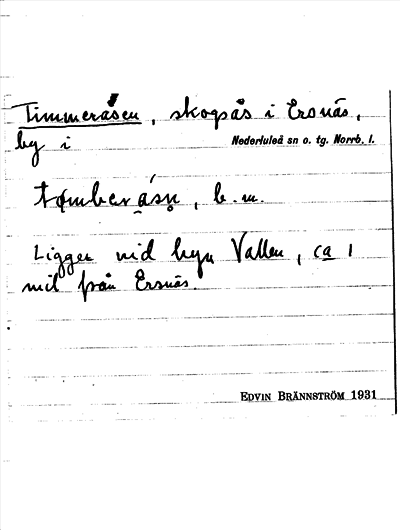 Timmeråsen, skogsås i Ersnäs,
by i Nederluleå sn o. tg. Norrb. l.
tømberåsn̥, b. m.
Ligger vid byn Vallen, ca 1
mil från Ersnäs.
EDVIN BRÄNNSTRÖM 1931